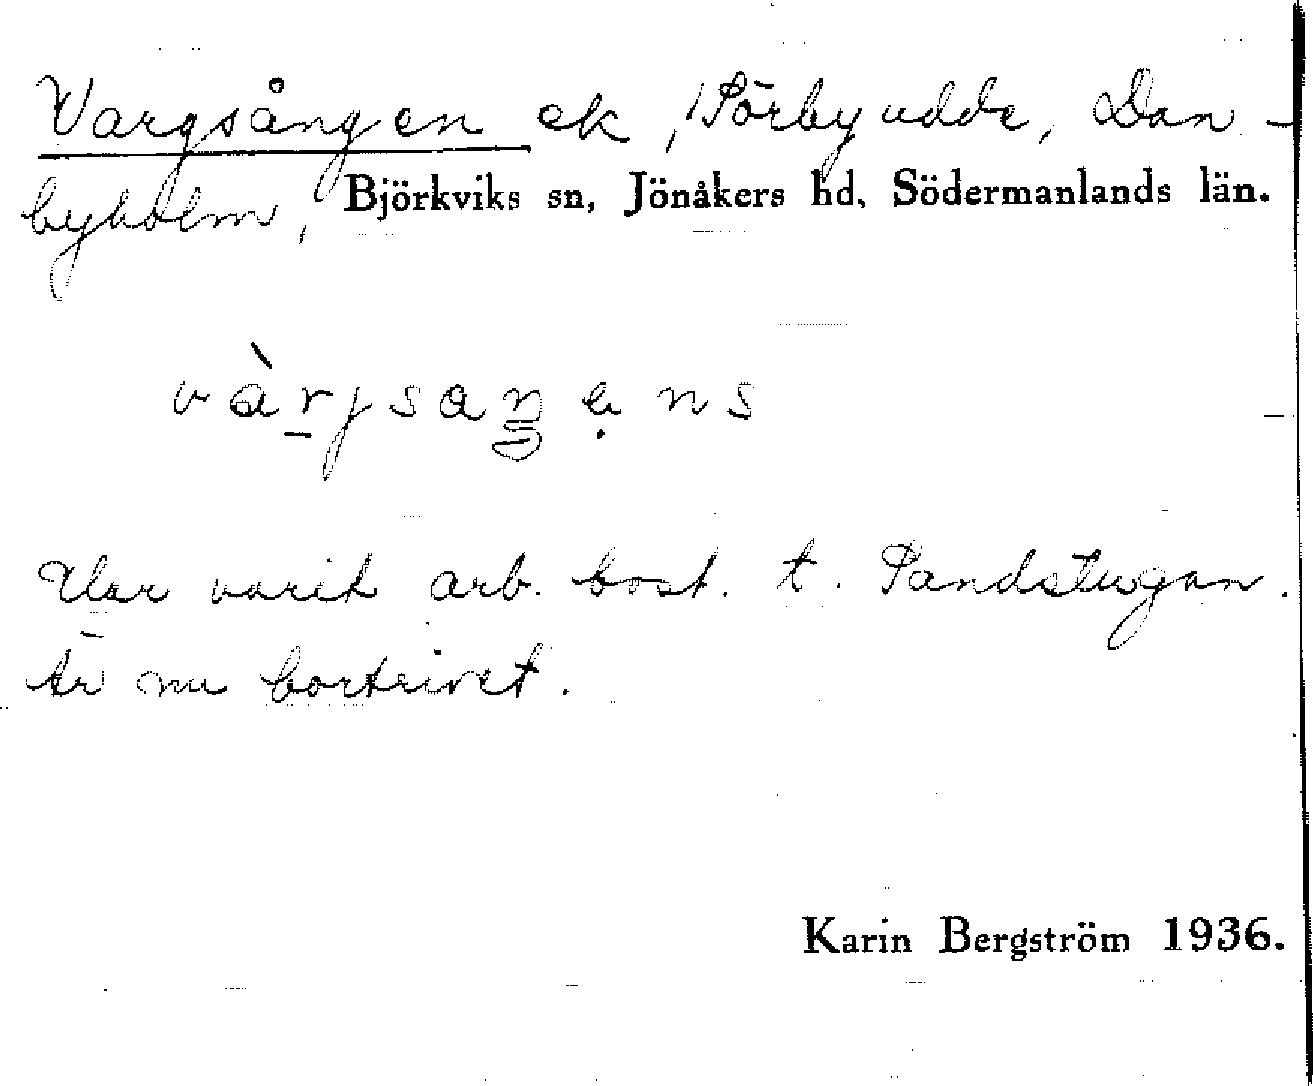 Vargsången ek, Sörby udde, Dan-
byholm, Björkviks sn, Jönåkers hd, Södermanlands län.
Har varit arb. bost. t. Sandstugan.
Är nu bortrivet.
Karin Bergström 1936.